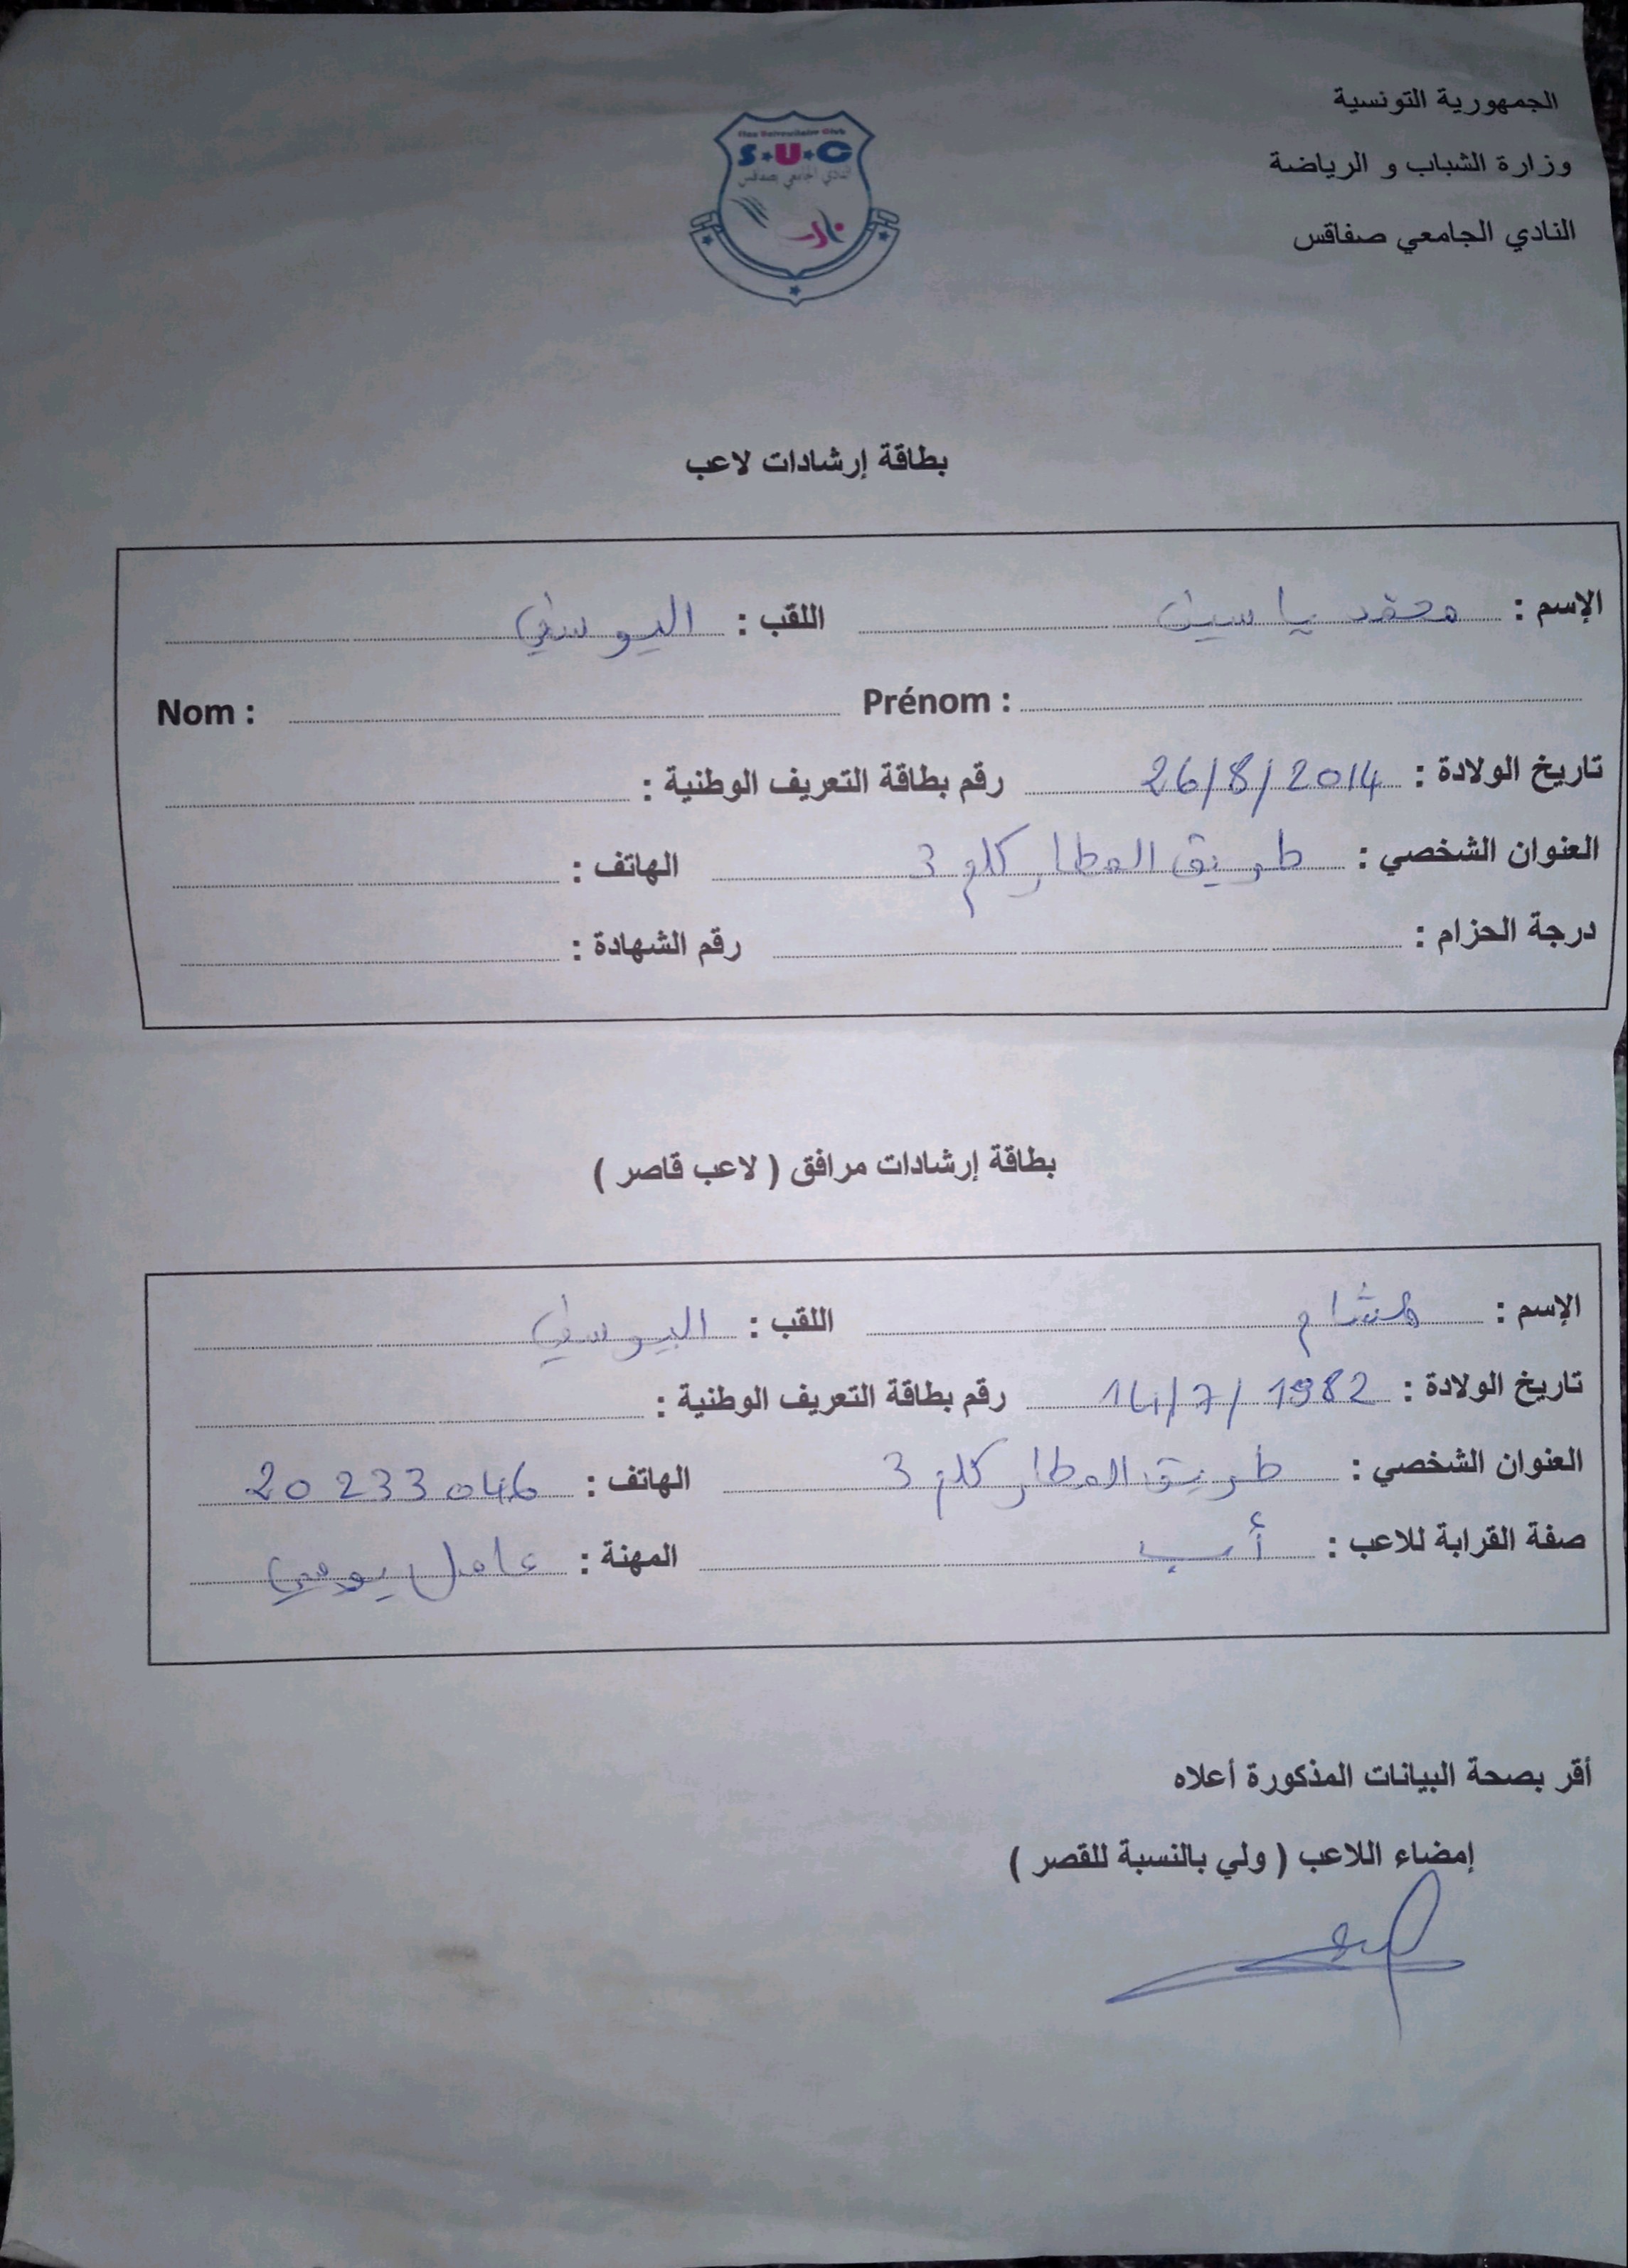 الجمهورية التونسية
وزارة الشباب و الرياضة
النادي الجامعي صفاقس
Sfax Universitaire Club
S★U★C
النادي الجامعي بصفاقس
بطاقة إرشادات لاعب
الإسم : محمد ياسين اللقب : اليوسفي
Nom : Prénom :
تاريخ الولادة : 26/8/2014 رقم بطاقة التعريف الوطنية :
العنوان الشخصي : طريق المطار كلم 3 الهاتف :
درجة الحزام : رقم الشهادة :
بطاقة إرشادات مرافق ( لاعب قاصر )
الإسم : هشام اللقب : اليوسفي
تاريخ الولادة : 14/7/1982 رقم بطاقة التعريف الوطنية :
العنوان الشخصي : طريق المطار كلم 3 الهاتف : 20233046
صفة القرابة للاعب : أب المهنة : عامل يومي
أقر بصحة البيانات المذكورة أعلاه
إمضاء اللاعب ( ولي بالنسبة للقصر )